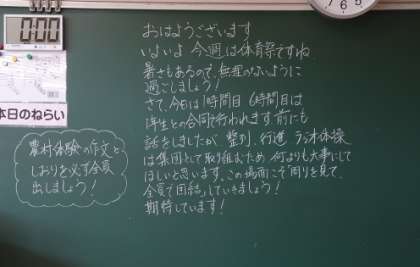 おはようございます
いよいよ今週は体育祭ですね
暑さもあるので、無理のないように
過ごしましょう!
さて、今日は1時間目 6時間目は
学生との合同で行われます 前にも
話をしましたが 整列、行進 ラジオ体操
は集団として取り組むため 何よりも大事にして
ほしいと思います。この場面こそ周りを見て、
全員で団結していきましょう!
期待しています!
農村体験の作文と
しおりを必ず全員
出しましょう!
本日のねらい
0:00